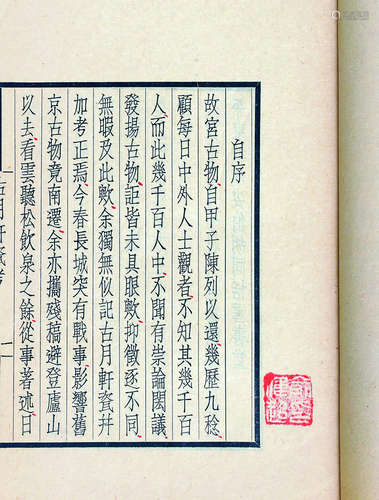 自序
故宮古物自甲子陳列以還幾歷九稔
顧每日中外人士觀者不知其幾千百
人而此幾千百人中不聞有崇論閎議
發揚古物詎皆未具眼歟抑徵逐不同
無暇及此歟余獨無似記古月軒瓷并
加考正焉今春長城突有戰事影響舊
京古物竟南遷余亦攜殘稿避登廬山
以去看雲聽松飲泉之餘從事著述日